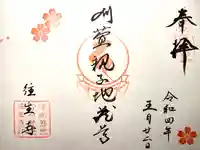 奉拝
令和四年
五月廿二日
刈萱親子地蔵尊
往生寺